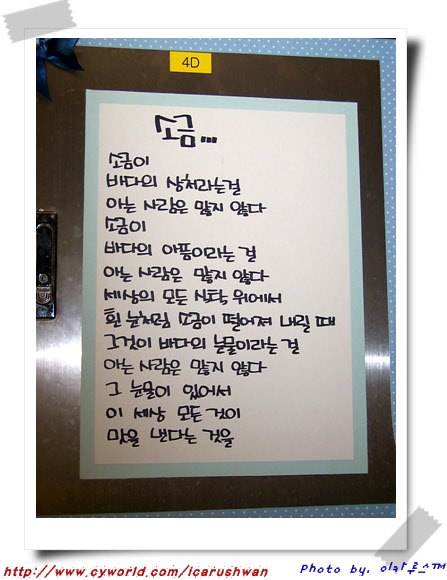 4D
소금...
소금이
바다의 상처라는걸
아는 사람은 많지 않다
소금이
바다의 아픔이라는 걸
아는 사람은 많지 않다
세상의 모든 식탁 위에서
흰 눈처럼 소금이 떨어져 내릴 때
그것이 바다의 눈물이라는 걸
아는 사람은 많지 않다
그 눈물이 있어서
이 세상 모든 것이
맛을 낸다는 것을
http://www.cyworld.com/icarushwan
Photo by. 이카루스™